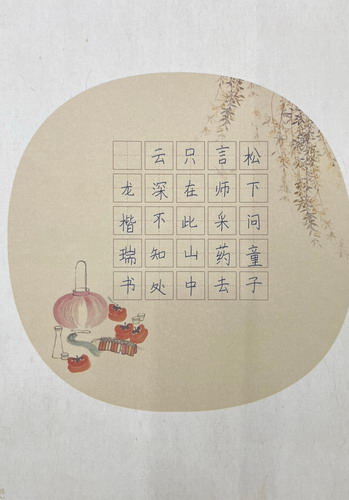 松下问童子
言师采药去
只在此山中
云深不知处
龙楷瑞书